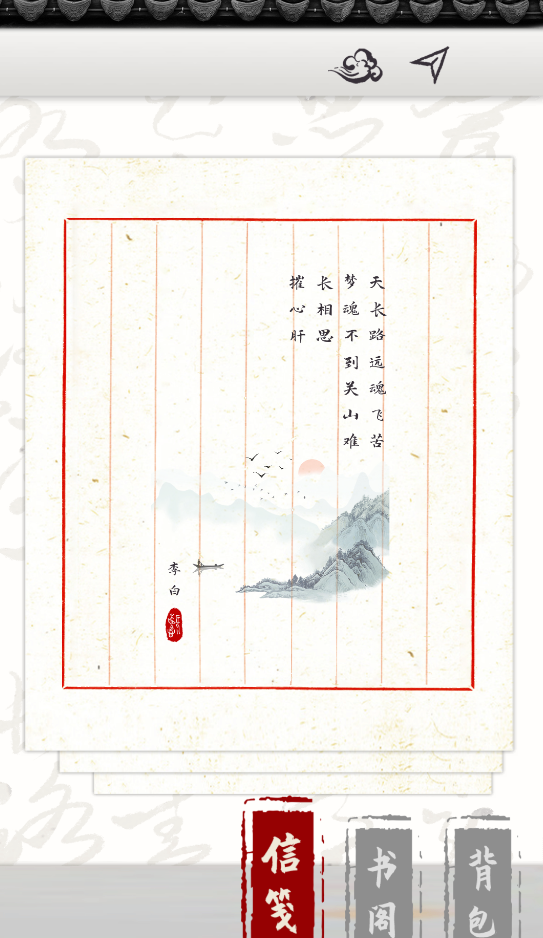 天长路远魂飞苦
梦魂不到关山难
长相思
摧心肝
李白
信笺
书阁
背包